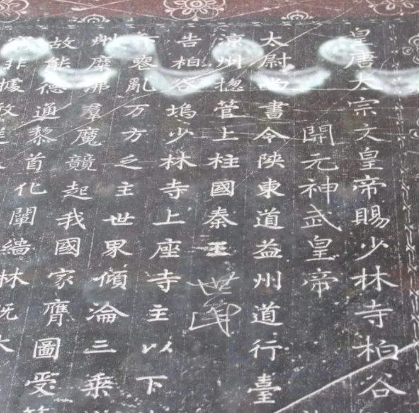 皇唐太宗文皇帝賜少林寺柏谷
開元神武皇帝
太尉尚書令陝東道益州道行臺
涼州揔管上柱國秦王世民
告柏谷塢少林寺上座寺主以下
喪亂万方之主世界傾淪三乘
州糜沸羣魔競起我國家膺圖受
故能德通黎首化闡緇林既
非據敢